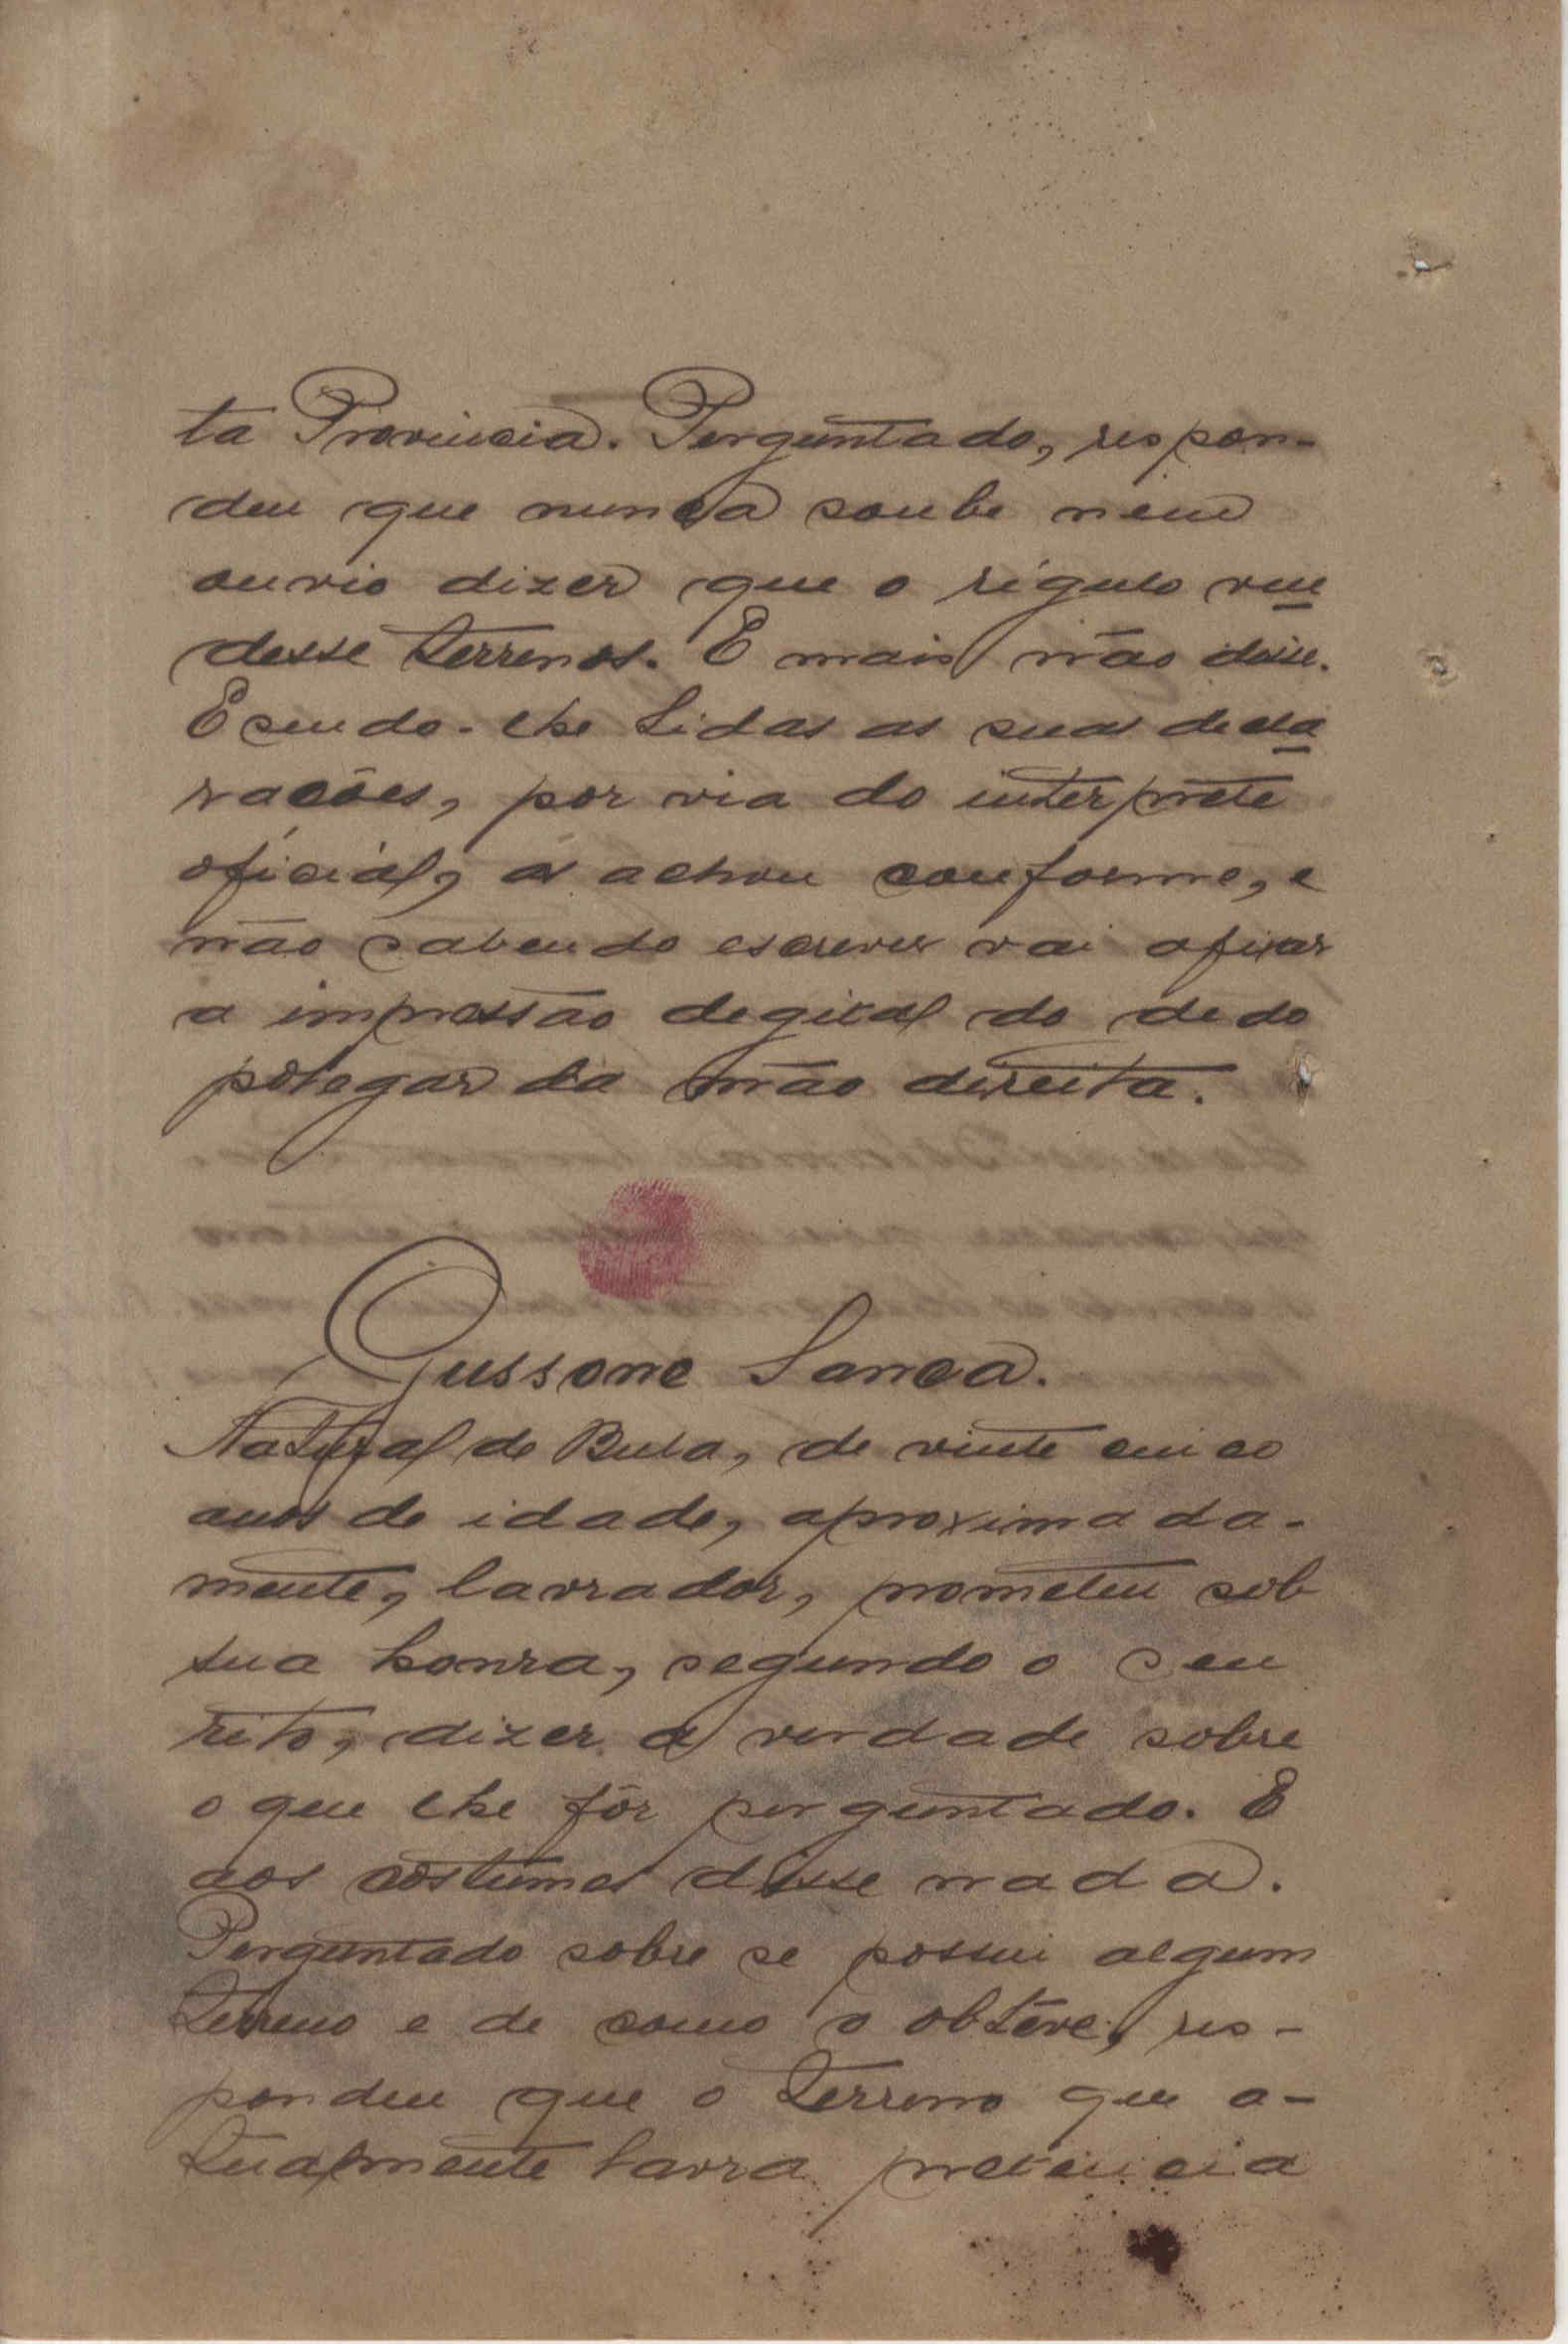 ta Provincia. Perguntado, respon-
deu que nunca soube nem
ouvio dizer que o régulo ven
desse terrenos. E mais não disse.
E sendo-lhe lidas as suas decla
rações, por via do interprete
oficial, as achou conforme, e
não sabendo escrever vai afixar
a impressão degital do dedo
polegar da mão direita.
Qussone Sanca.
Natural de Bula, de vinte cinco
anos de idade, aproximada-
mente, lavrador, prometeu sob
sua honra, segundo o seu
rito, dizer a verdade sobre
o que lhe fôr perguntado. E
aos costumes disse nada.
Perguntado sobre se possui algum
terreno e de como o obteve, res-
pondeu que o terreno que a-
tualmente lavra pretencia